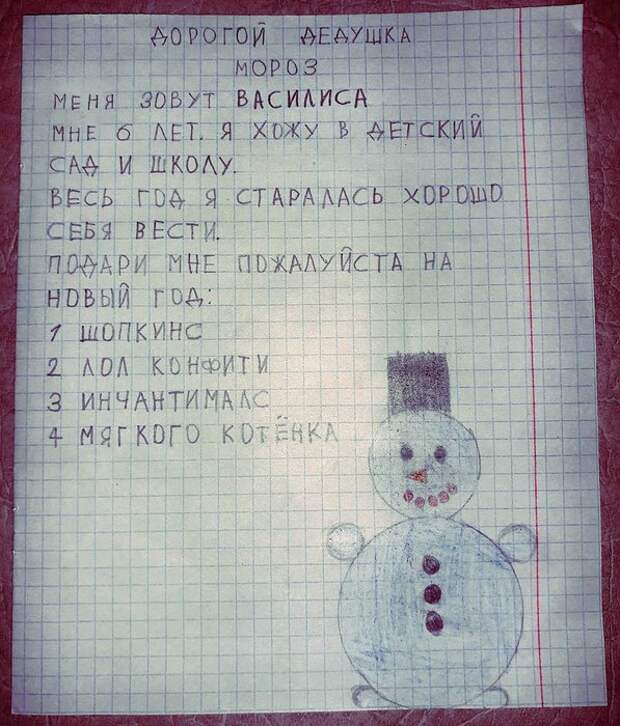 ДОРОГОЙ ДЕДУШКА
МОРОЗ
МЕНЯ ЗОВУТ ВАСИЛИСА
МНЕ 6 ЛЕТ. Я ХОЖУ В ДЕТСКИЙ
САД И ШКОЛУ.
ВЕСЬ ГОД Я СТАРАЛАСЬ ХОРОШО
СЕБЯ ВЕСТИ.
ПОДАРИ МНЕ ПОЖАЛУЙСТА НА
НОВЫЙ ГОД:
1 ШОПКИНС
2 ЛОЛ КОНФИТИ
3 ИНЧАНТИМАЛС
4 МЯГКОГО КОТЁНКА